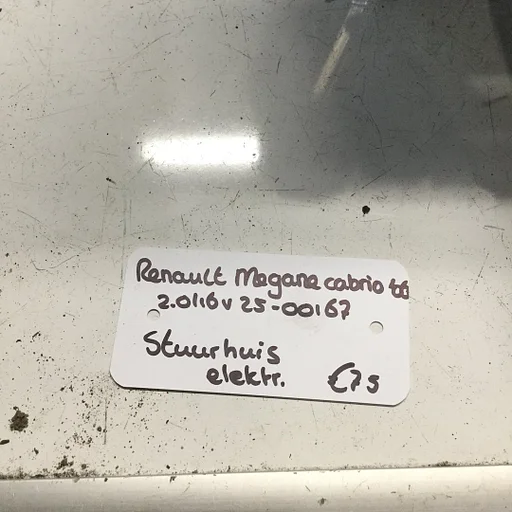 Renault Megane cabrio 06
2.0i16v 25-00167
Stuurhuis
elektr. €75